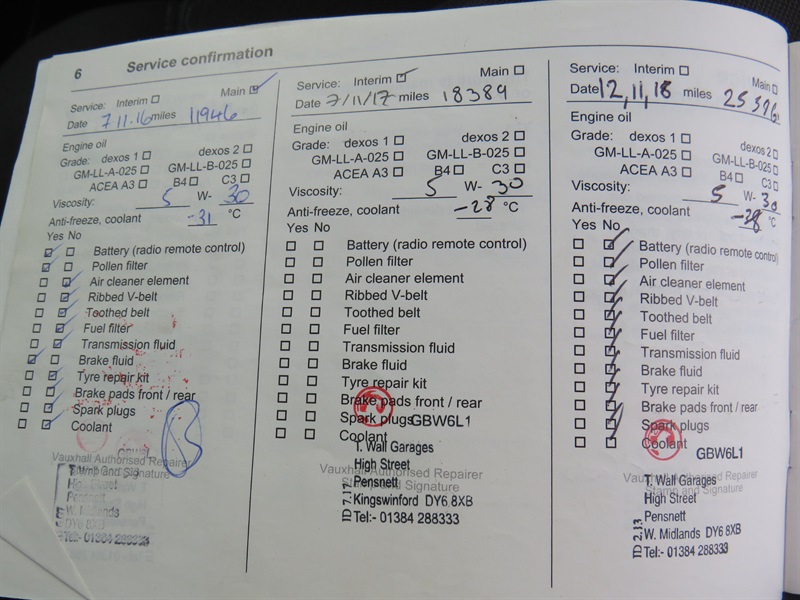 6 Service confirmation
Service: Interim ☐ Main ☑
Date 7.11.16 miles 11946
Engine oil
Grade: dexos 1 ☐ dexos 2 ☐
GM-LL-A-025 ☐ GM-LL-B-025 ☐
ACEA A3 ☐ B4 ☐ C3 ☐
Viscosity: 5 W- 30
Anti-freeze, coolant -31 °C
Yes No
Battery (radio remote control)
Pollen filter
Air cleaner element
Ribbed V-belt
Toothed belt
Fuel filter
Transmission fluid
Brake fluid
Tyre repair kit
Brake pads front / rear
Spark plugs
Coolant
Vauxhall Authorised Repairer
Stamp and Signature
Pensnett
W. Midlands
DY6 8XB
Tel:- 01384 288333
Service: Interim ☑ Main ☐
Date 7/11/17 miles 18389
Engine oil
Grade: dexos 1 ☐ dexos 2 ☐
GM-LL-A-025 ☐ GM-LL-B-025 ☐
ACEA A3 ☐ B4 ☐ C3 ☐
Viscosity: 5 W- 30
Anti-freeze, coolant -28 °C
Yes No
Battery (radio remote control)
Pollen filter
Air cleaner element
Ribbed V-belt
Toothed belt
Fuel filter
Transmission fluid
Brake fluid
Tyre repair kit
Brake pads front / rear
Spark plugs GBW6L1
Coolant
T. Wall Garages
High Street
Vauxhall Authorised Repairer
Pensnett
Stamp and Signature
Kingswinford DY6 8XB
Tel:- 01384 288333
Service: Interim ☐ Main ☐
Date 12,11,18 miles
Engine oil
Grade: dexos 1 ☐ dexos 2 ☐
GM-LL-A-025 ☐ GM-LL-B-025 ☐
ACEA A3 ☐ B4 ☐ C3 ☐
Viscosity: 5 W- 30
Anti-freeze, coolant -28 °C
Yes No
Battery (radio remote control)
Pollen filter
Air cleaner element
Ribbed V-belt
Toothed belt
Fuel filter
Transmission fluid
Brake fluid
Tyre repair kit
Brake pads front / rear
Spark plugs
Coolant GBW6L1
Vauxhall Authorised Repairer
T. Wall Garages
Stamp and Signature
High Street
Pensnett
W. Midlands DY6 8XB
Tel:- 01384 288333